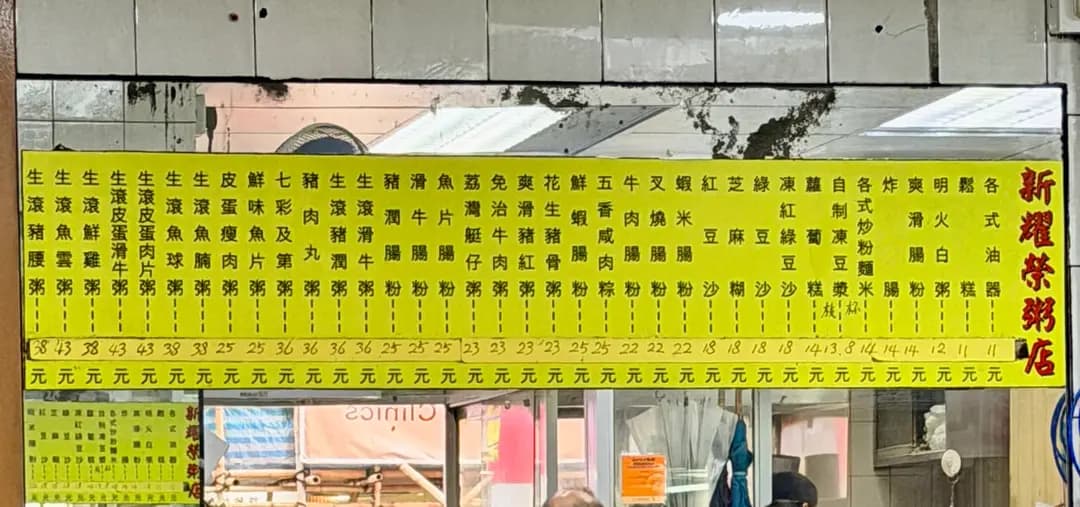 新耀榮粥店
各式油器 11元
鬆糕 11元
明火白粥 12元
爽滑腸粉 14元
炸腸 14元
各式炒粉麵米 14元
自制凍豆漿 枝 杯 13.8元
蘿蔔糕 14元
凍紅綠豆沙 18元
綠豆沙 18元
芝麻糊 18元
紅豆沙 18元
蝦米腸粉 22元
叉燒腸粉 22元
牛肉腸粉 22元
五香咸肉粽 25元
鮮蝦腸粉 25元
花生豬骨粥 23元
爽滑豬紅粥 23元
免治牛肉粥 23元
荔灣艇仔粥 23元
魚片腸粉 25元
滑牛腸粉 25元
豬潤腸粉 25元
生滾滑牛粥 36元
生滾豬潤粥 36元
豬肉丸粥 36元
七彩及第粥 36元
鮮味魚片粥 25元
皮蛋瘦肉粥 25元
生滾魚腩粥 38元
生滾魚球粥 38元
生滾皮蛋肉片粥 43元
生滾皮蛋滑牛粥 43元
生滾鮮雞粥 38元
生滾魚雲粥 43元
生滾豬腰粥 38元
Clinics